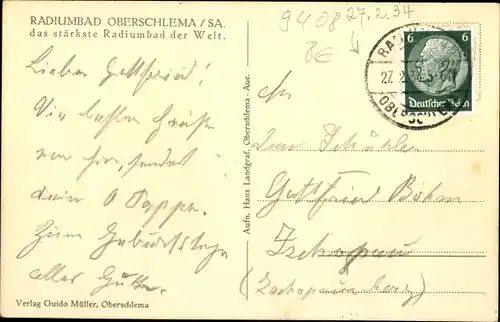 RADIUMBAD OBERSCHLEMA / SA.
das stärkste Radiumbad der Welt.
9408
27.2.34
BE
6 6
Deutsches Reich
27. 2.
OBERSCHLEMA
Lieber Gottfried!
Die besten Grüße
von hier, sendet
dein O Pappa.
Zum Geburtstage
alles Gute.
Aufn. Hans Landgraf, Oberschlema-Aue.
An
den Schüler
Gottfried Böhm
Zschopau
Verlag Guido Müller, Oberschlema